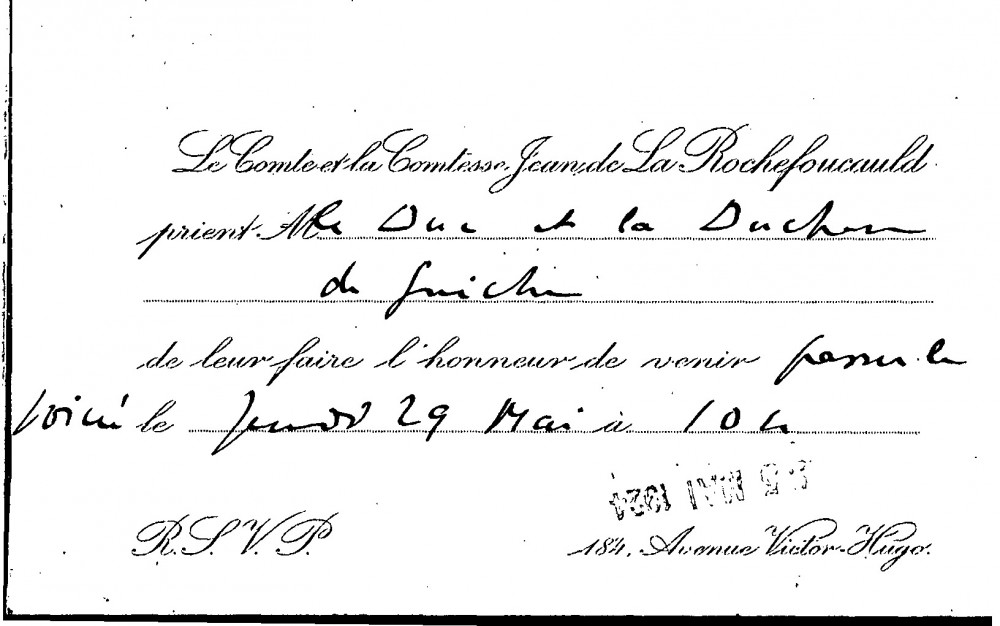 Le Comte et la Comtesse Jean de La Rochefoucauld
prient M le Duc et la Duchesse
de Guiche
de leur faire l'honneur de venir passer la
soirée le Jeudi 29 Mai à 10 h
MAI 1924
R.S.V.P. 184, Avenue Victor-Hugo.